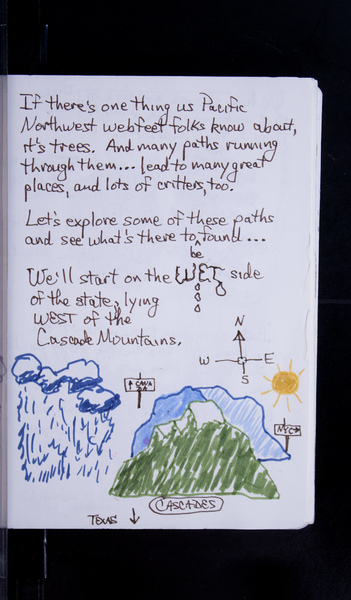 If there's one thing us Pacific
Northwest webfeet folks know about,
it's trees. And many paths running
through them... lead to many great
places, and lots of critters, too.
Let's explore some of these paths
and see what's there to be found...
We'll start on the WET side
of the state, lying
WEST of the
Cascade Mountains.
N
W E
S
CANA
NYC
CASCADES
TEXAS